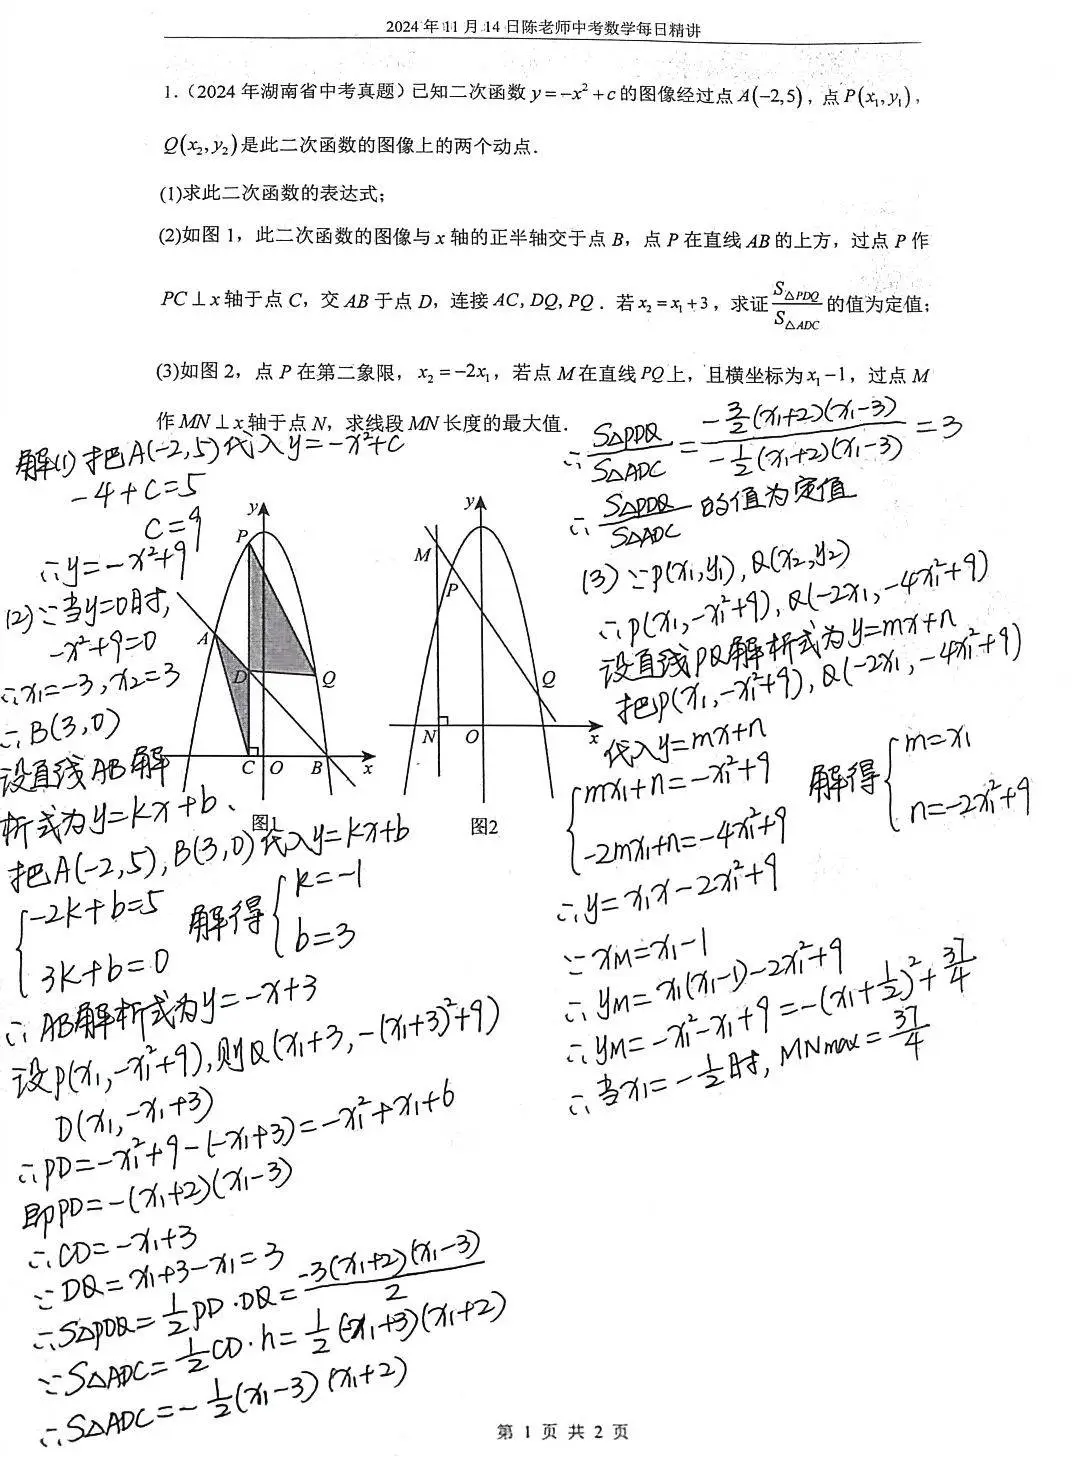 2024年11月14日陈老师中考数学每日精讲
1.(2024年湖南省中考真题)已知二次函数 y=-x²+c 的图像经过点 A(-2,5),点 P(x₁,y₁),
Q(x₂,y₂)是此二次函数的图像上的两个动点.
(1)求此二次函数的表达式;
(2)如图1,此二次函数的图像与x轴的正半轴交于点B,点P在直线AB的上方,过点P作
PC⊥x轴于点C,交AB于点D,连接AC,DQ,PQ.若x₂=x₁+3,求证 S△PDQ/S△ADC 的值为定值;
(3)如图2,点P在第二象限,x₂=-2x₁,若点M在直线PQ上,且横坐标为x₁-1,过点M
作MN⊥x轴于点N,求线段MN长度的最大值.
解(1)把A(-2,5)代入y=-x²+c
-4+c=5
c=9
∴y=-x²+9
(2)∵当y=0时,
-x²+9=0
∴x₁=-3,x₂=3
∴B(3,0)
设直线AB解
析式为y=kx+b、
把A(-2,5),B(3,0)代入y=kx+b
{-2k+b=5
3k+b=0
解得{k=-1
b=3
∴AB解析式为y=-x+3
设P(x₁,-x₁²+9),则Q(x₁+3,-(x₁+3)²+9)
D(x₁,-x₁+3)
∴PD=-x₁²+9-(-x₁+3)=-x₁²+x₁+6
即PD=-(x₁+2)(x₁-3)
∴CD=-x₁+3
∵DQ=x₁+3-x₁=3
∴S△PDQ=1/2PD·DQ=-3(x₁+2)(x₁-3)/2
∵S△ADC=1/2CD·h=1/2(-x₁+3)(x₁+2)
∴S△ADC=-1/2(x₁-3)(x₁+2)
y
P
A
D
Q
C
O
B
x
图1
y
M
P
Q
N
O
x
图2
∴S△PDQ/S△ADC=-3/2(x₁+2)(x₁-3)/-1/2(x₁+2)(x₁-3)=3
∴S△PDQ/S△ADC的值为定值
(3)∵P(x₁,y₁),Q(x₂,y₂)
∴P(x₁,-x₁²+9),Q(-2x₁,-4x₁²+9)
设直线PQ解析式为y=mx+n
把P(x₁,-x₁²+9),Q(-2x₁,-4x₁²+9)
代入y=mx+n
{mx₁+n=-x₁²+9
-2mx₁+n=-4x₁²+9
解得{m=x₁
n=-2x₁²+9
∴y=x₁x-2x₁²+9
∵xM=x₁-1
∴yM=x₁(x₁-1)-2x₁²+9
∴yM=-x₁²-x₁+9=-(x₁+1/2)²+37/4
∴当x₁=-1/2时,MNmax=37/4
第1页共2页